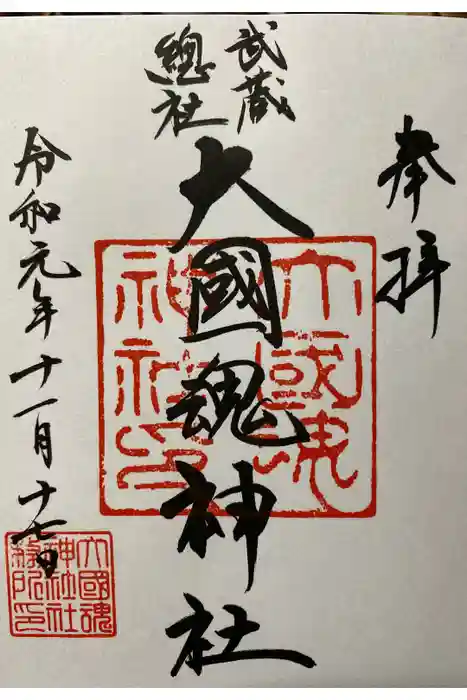 奉拝
武蔵
總社
大國魂神社
令和元年十一月十七日
大國魂
神社印
大國魂
神社社
務所印